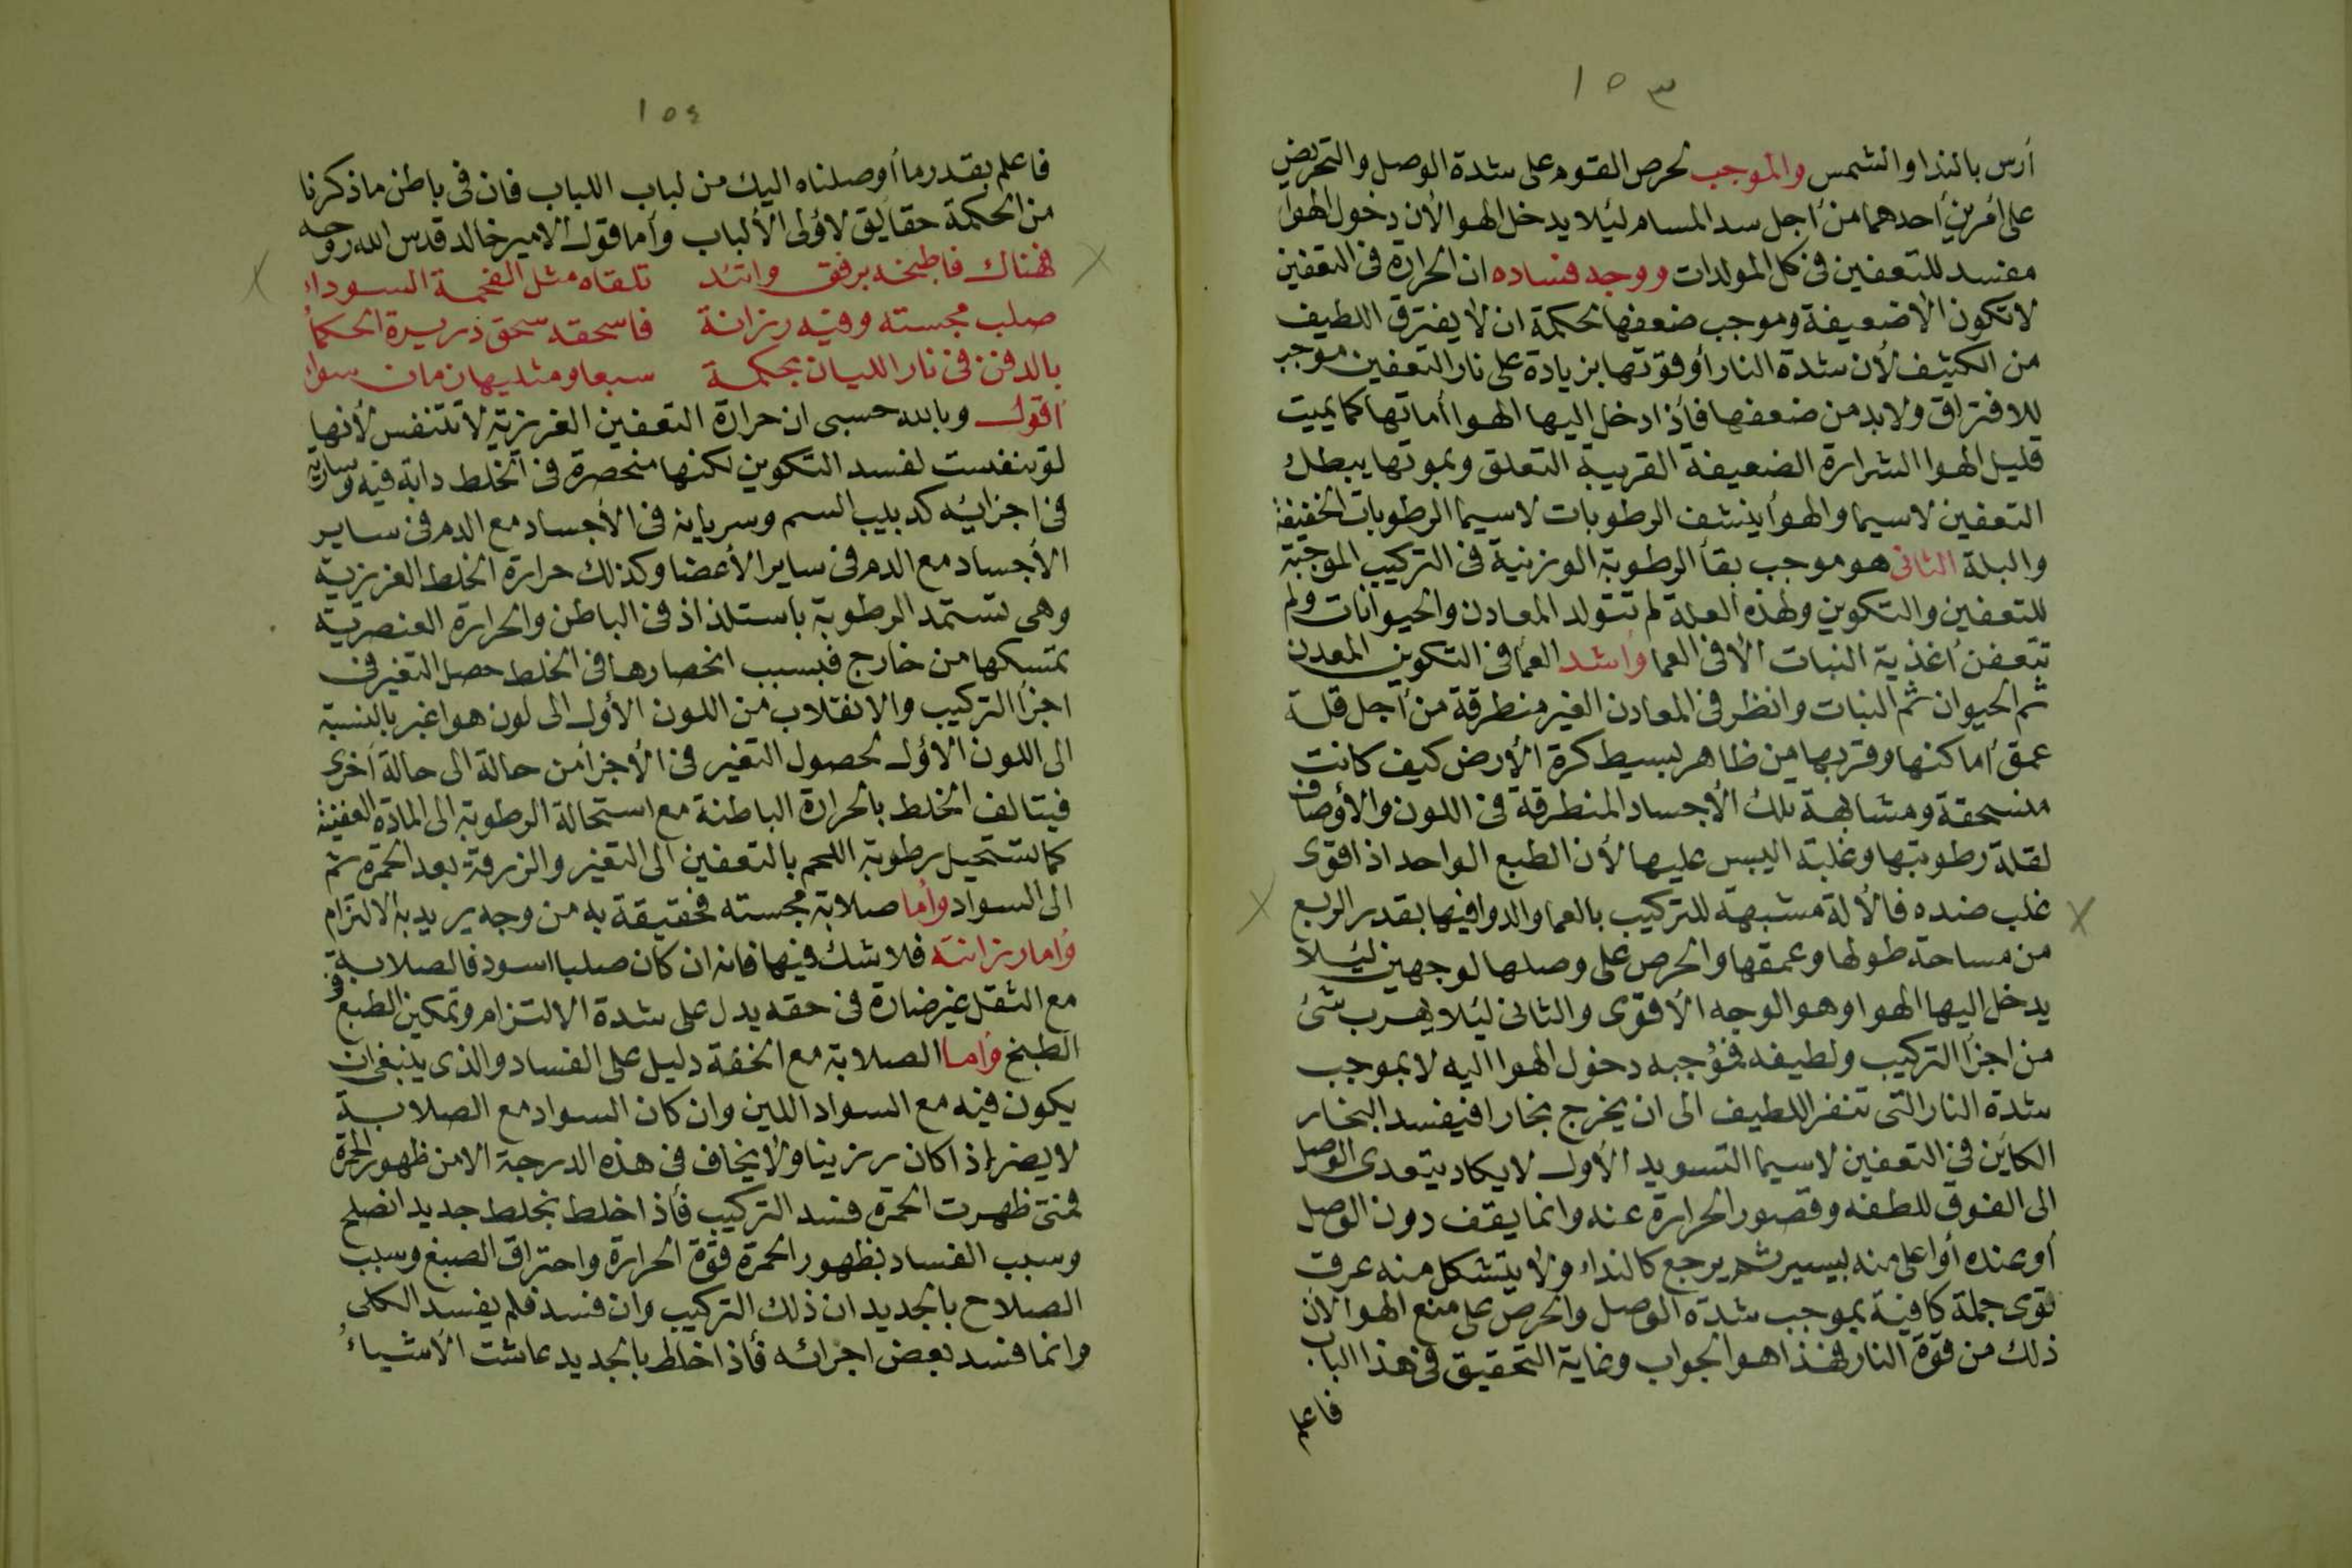 ١٥٣
أرس بالندا والشمس والموجب لحرص القوم على شدة الوصل والتحريض
على أمرين أحدهما من أجل سد المسام ليئلا يدخل الهوا لأن دخول الهوا
مفسد للتعفين في كل المولدات ووجه فساده ان الحرارة في التعفين
لا تكون الا ضعيفة وموجب ضعفها لحكمة ان لا يفترق اللطيف
من الكثيف لأن شدة النار أو قوتها بزيادة على نار التعفين موجب
للافتراق ولا بد من ضعفها فأذا دخل اليها الهوا أماتها كما يميت
قليل الهوا الشرارة الضعيفة القريبة التعلق وبموتها يبطل
التعفين لاسيما والهوأ ينشف الرطوبات لاسيما الرطوبات الخفيفة
والبلة الثانى هو موجب بقأ الرطوبة الوزنية في التركيب الموجبة
للتعفين والتكوين ولهذه العلة لم تتولد المعادن والحيوانات ولم
تتعفن أغذية النبات الا فى العما وأشد العما فى التكوين المعدن
ثم الحيوان ثم النبات وانظر فى المعادن الغير منطرقة من أجل قلة
عمق أماكنها وقربها من ظاهر بسيط كرة الأرض كيف كانت
منسحقة ومشابهة تلك الأجساد المنطرقة فى اللون والأوصاف
لقلة رطوبتها وغلبة اليبس عليها لأن الطبع الواحد اذا قوى
غلب ضده فالألة مشبهة للتركيب بالعما والدوا فيها بقدر الربع
من مساحة طولها وعمقها والحرص على وصلها لوجهين ليئلا
يدخل اليها الهوا وهو الوجه الأقوى والثانى ليئلا يهرب شئ
من اجزأ التركيب ولطيفه فمؤجبه دخول الهوا اليه لا بموجب
شدة النار التى تنفر اللطيف الى ان يخرج بخارا فيفسد البخار
الكاين في التعفين لاسيما التسويد الأول لا يكاد يتعدى الوصل
الى الفوق للطفه وقصور الحرارة عنه وانما يقف دون الوصل
أو عنده أو أعلى منه بيسير ثم يرجع كالنداء ولا يتشكل منه عرق
قوى جملة كافية بموجب شدة الوصل والحرص على منع الهوا لأن
ذلك من قوة النار فهذا هو الجواب وغاية التحقيق فى هذا الباب
فاعلم
١٥٤
فاعلم بقدر ما أوصلناه اليك من لباب اللباب فان فى باطن ما ذكرنا
من الحكمة حقايق لاؤلى الألباب وأما قول الامير خالد قدس الله روحه
فهناك فاطبخه برفق واتئد تلقاه مثل الفحمة السوداء
صلب مجسته وفيه رزانة فاسحقه سحق ذريرة الحكمأ
بالدفن فى نار الليان بحكمة سبعا ومثليها زمان سواء
اقول وبالله حسبى ان حرارة التعفين الغريزية لا تتنفس لأنها
لو تنفست لفسد التكوين لكنها منحصرة فى الخلط دابة فيه وسارية
فى اجزائه كدبيب السم وسريانه فى الأجساد مع الدم فى ساير
الأجساد مع الدم فى ساير الأعضا وكذلك حرارة الخلط الغريزية
وهى تستمد الرطوبة باستلذاذ فى الباطن والحرارة العنصرية
تمسكها من خارج فبسبب انحصارها فى الخلط حصل التغير فى
اجزأ التركيب والانقلاب من اللون الأول الى لون هو اغبر بالنسبة
الى اللون الاؤل لحصول التغير فى الأجزأ من حالة الى حالة أخرى
فيتالف الخلط بالحرارة الباطنة مع استحالة الرطوبة الى المادة العفنية
كما تستحيل رطوبة اللحم بالتعفين الى التغير والزرقة بعد الحمرة ثم
الى السواد وأما صلابة مجسته فحقيقة به من وجه يريد به الالتزام
وأما رزانته فلا شك فيها فانه ان كان صلبا اسود فالصلابة
مع الثقل غير ضارة فى حقه يدل على شدة الالتزام وتمكين الطبع فى
الطبخ وأما الصلابة مع الخفة دليل على الفساد والذى ينبغى ان
يكون فيه مع السواد اللين وان كان السواد مع الصلابة
لا يضر اذا كان رزينا ولا يخاف فى هذه الدرجة الا من ظهور الحمرة
فمتى ظهرت الحمرة فسد التركيب فأذا خلط بخلط جديد انصلح
وسبب الفساد بظهور الحمرة قوة الحرارة واحتراق الصبغ وسبب
الصلاح بالجديد ان ذلك التركيب وان فسد فلم يفسد الكلى
وانما فسد بعض اجزائه فأذا خلط بالجديد عاشت الأشياء